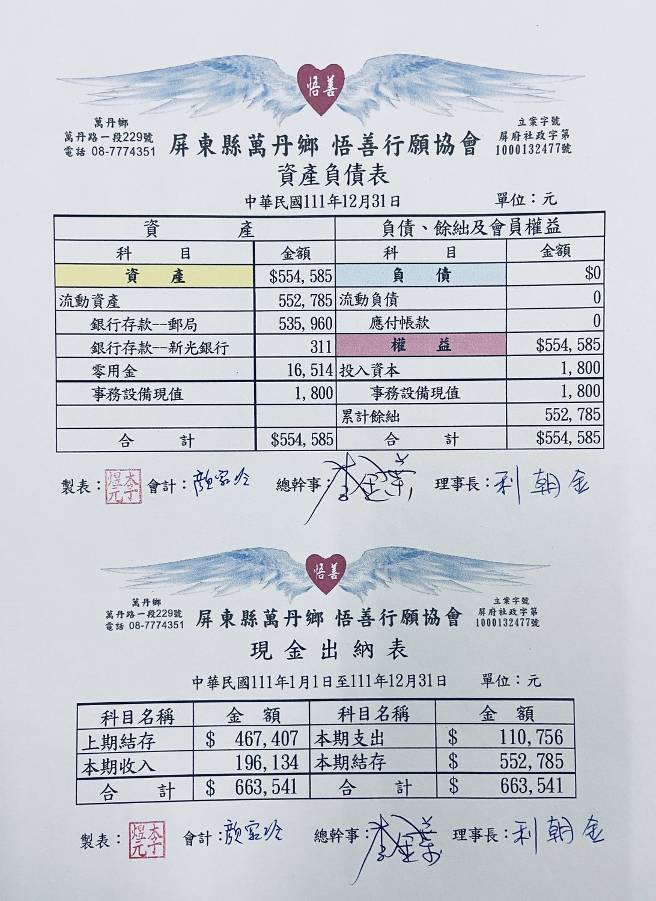 悟善
萬丹鄉
萬丹路一段229號
電話 08-7774351
屏東縣萬丹鄉 悟善行願協會
立案字號
屏府社政字第
1000132477號
資產負債表
中華民國111年12月31日 單位：元
資 產 負債、餘絀及會員權益
科 目 金額 科 目 金額
資 產 $554,585 負 債 $0
流動資產 552,785 流動負債 0
銀行存款--郵局 535,960 應付帳款 0
銀行存款--新光銀行 311 權 益 $554,585
零用金 16,514 投入資本 1,800
事務設備現值 1,800 事務設備現值 1,800
累計餘絀 552,785
合 計 $554,585 合 計 $554,585
製表： 會計： 總幹事： 理事長：利朝金
悟善
萬丹鄉
萬丹路一段229號
電話 08-7774351
屏東縣萬丹鄉 悟善行願協會
立案字號
屏府社政字第
1000132477號
現金出納表
中華民國111年1月1日至111年12月31日 單位：元
科目名稱 金 額 科目名稱 金 額
上期結存 $ 467,407 本期支出 $ 110,756
本期收入 196,134 本期結存 $ 552,785
合 計 $ 663,541 合 計 $ 663,541
製表： 會計： 總幹事： 理事長：利朝金